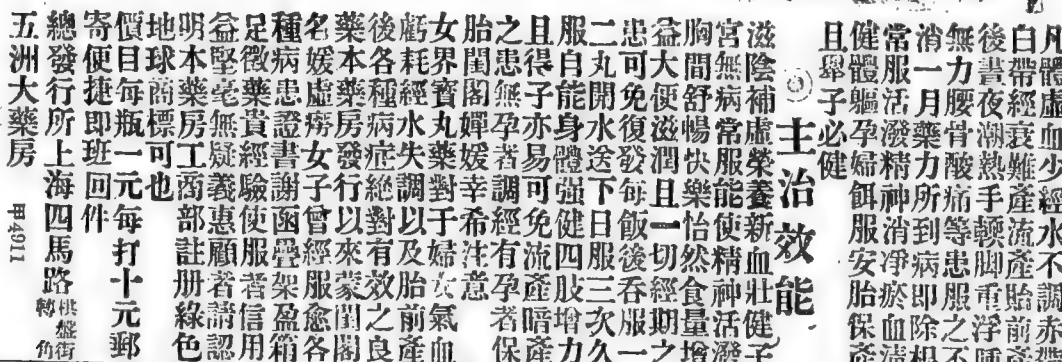 凡體虛血少經水不調赤
白帶經衰難產流產胎前產
後晝夜潮熱手輭脚重浮
無力腰骨酸痛等患服之
消一月藥力所到病即除
常服活潑精神消净瘀血
健體軀孕婦餌服安胎保產
且舉子必健
◎主治效能
滋陰補虛榮養新血壯健子
宮無病常服能使精神活潑
胸間舒暢快樂怡然食量增
益大便滋潤且一切經期之
患可免復發每飯後吞服一
二丸開水送下日服三次久
服白能身體强健四肢增力
且得子亦易可免流產暗產
之患無孕者調經有孕者保
胎閨閣嬋媛幸希注意
女界寶丸藥對于婦女氣血
虧耗經水失調以及胎前產
後各種病症絕對有效之良
藥本藥房發行以來蒙閨閣
名媛虛癆女子曾經服愈各
種病患證書謝函疊架盈箱
足徵藥貴經驗使服者信用
益堅毫無疑義惠顧者請認
明本藥房工商部註册綠色
地球商標可也
價目每瓶一元每打十元郵
寄便捷即班回件
總發行所上海四馬路棋盤街轉角
五洲大藥房
甲4911